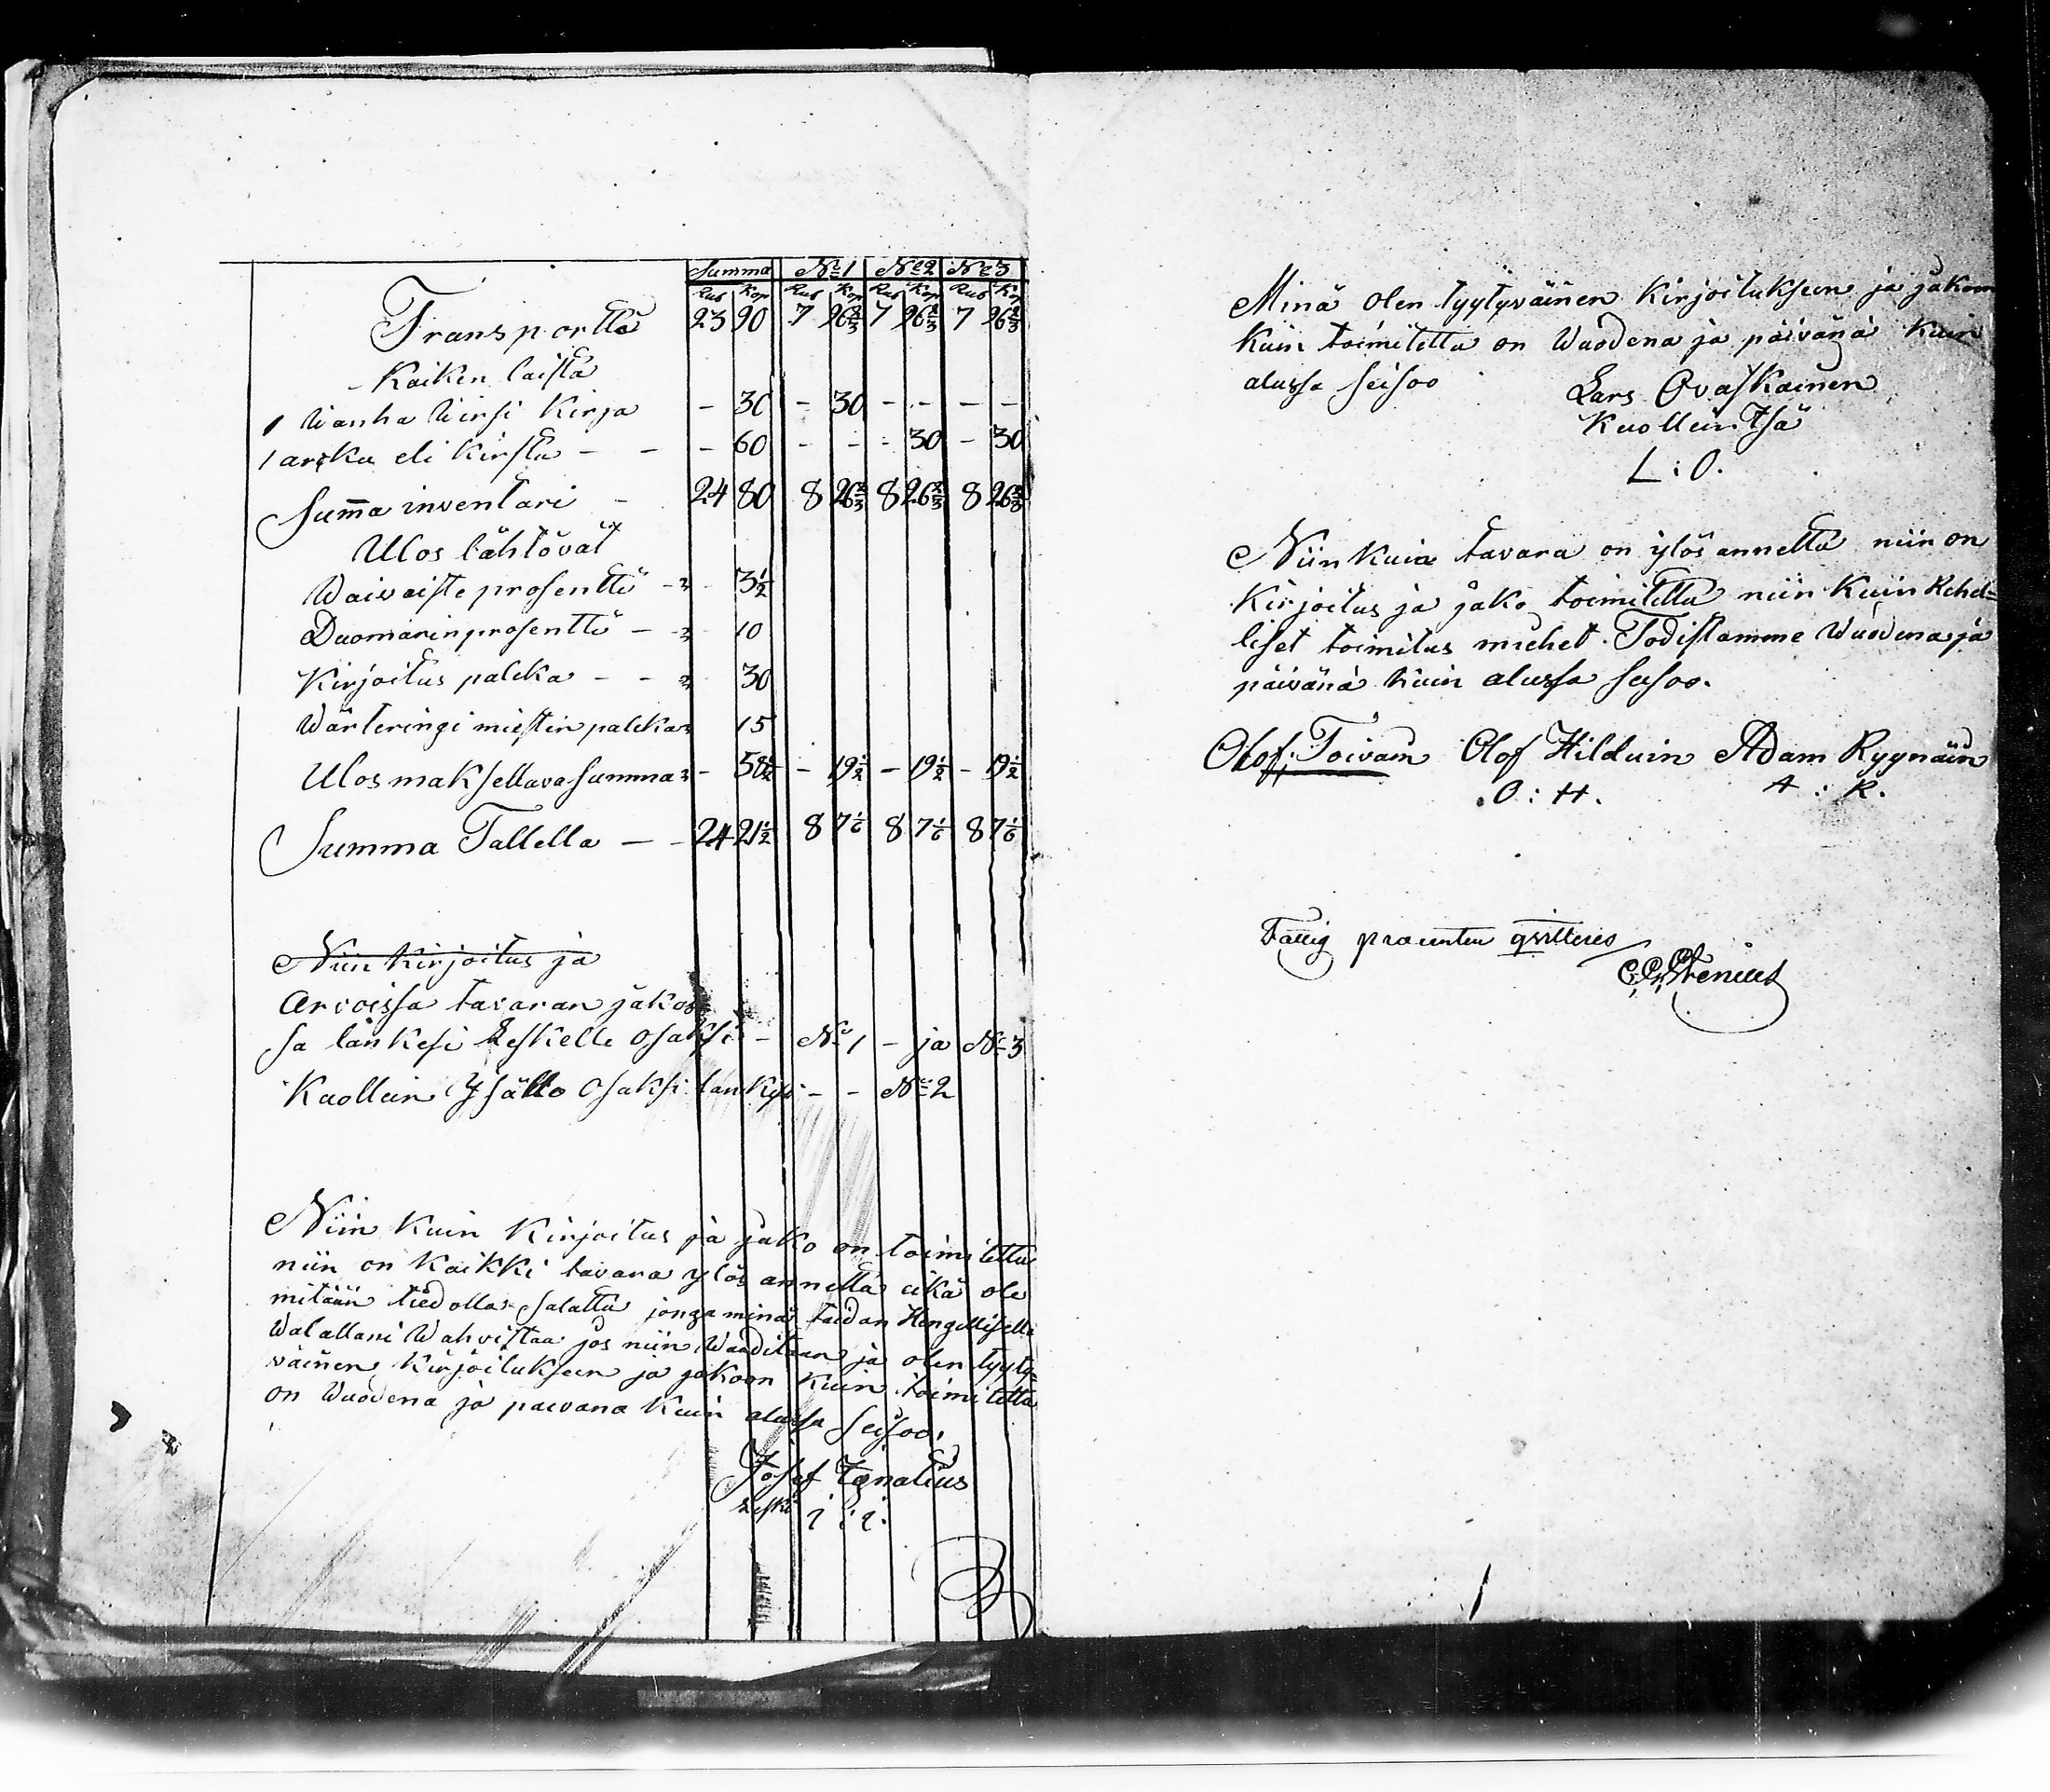 Summa No 1 No 2 No 3
Rub Kop Rub Kop Rub Kop Rub Kop
Transportti 23 90 7 96 2/3 7 96 2/3 7 96 2/3
Kaiken laista
1 Wanha Wirsi Kirja - 30 - 30 - - - -
1 arkku eli Kirstu - - - 60 - - - 30 - 30
Sum̄a inventari - 24 80 8 26 2/3 8 26 2/3 8 26 2/3
Ulos lähtövät
Waivaiste prosentti - 3 1/2
Duomarin prosentti - 10
Kirjoitus palkka - - 30
Wärteringi miestin palkka 15
Ulos maksettava summa - 58 1/2 - 19 1/2 - 19 1/2 - 19 1/2
Summa Tallella - - 24 21 1/2 8 7 1/6 8 7 1/6 8 7 1/6
Niin Kirjoitus ja
Arvoissa tavaran jakos
sa lankesi Leskelle osaksi - No 1 - ja No 3
Kuolluin Ysälle osaksi lankesi - - No 2
Niin Kuin Kirjoitus ja jako on toimitettu
niin on Kaikki tavara ylös annettu eikä ole
mitään tiedollas salattu jonga minä taidan Hengellisellä
Walallani Wahvistaa jos niin Waaditaan ja olen tyyty=
wäinen Kirjoitukseen ja jakoon Kuin toimitettu
on Wuodena ja päivänä Kuin alussa seisoo.
Josef Ignatius
Leski i : i.
Minä olen tyytyväinen Kirjoitukseen ja jakoon
Kuin toimitettu on Wuodena ja päivänä Kuin
alussa seisoo Lars Ovaskainen
Kuolluin Isä
L : O.
Niin Kuin tavara on ylös annettu niin on
Kirjoitus ja jako toimitettu niin Kuin Rehel=
liset toimitus miehet Todistamme Wuodena ja
päivänä Kuin alussa seisoo.
Olof Toivain Olof Hilduin Adam Rygnäin
O : H. A : R.
Fattig procenten qvitteres
Stenius